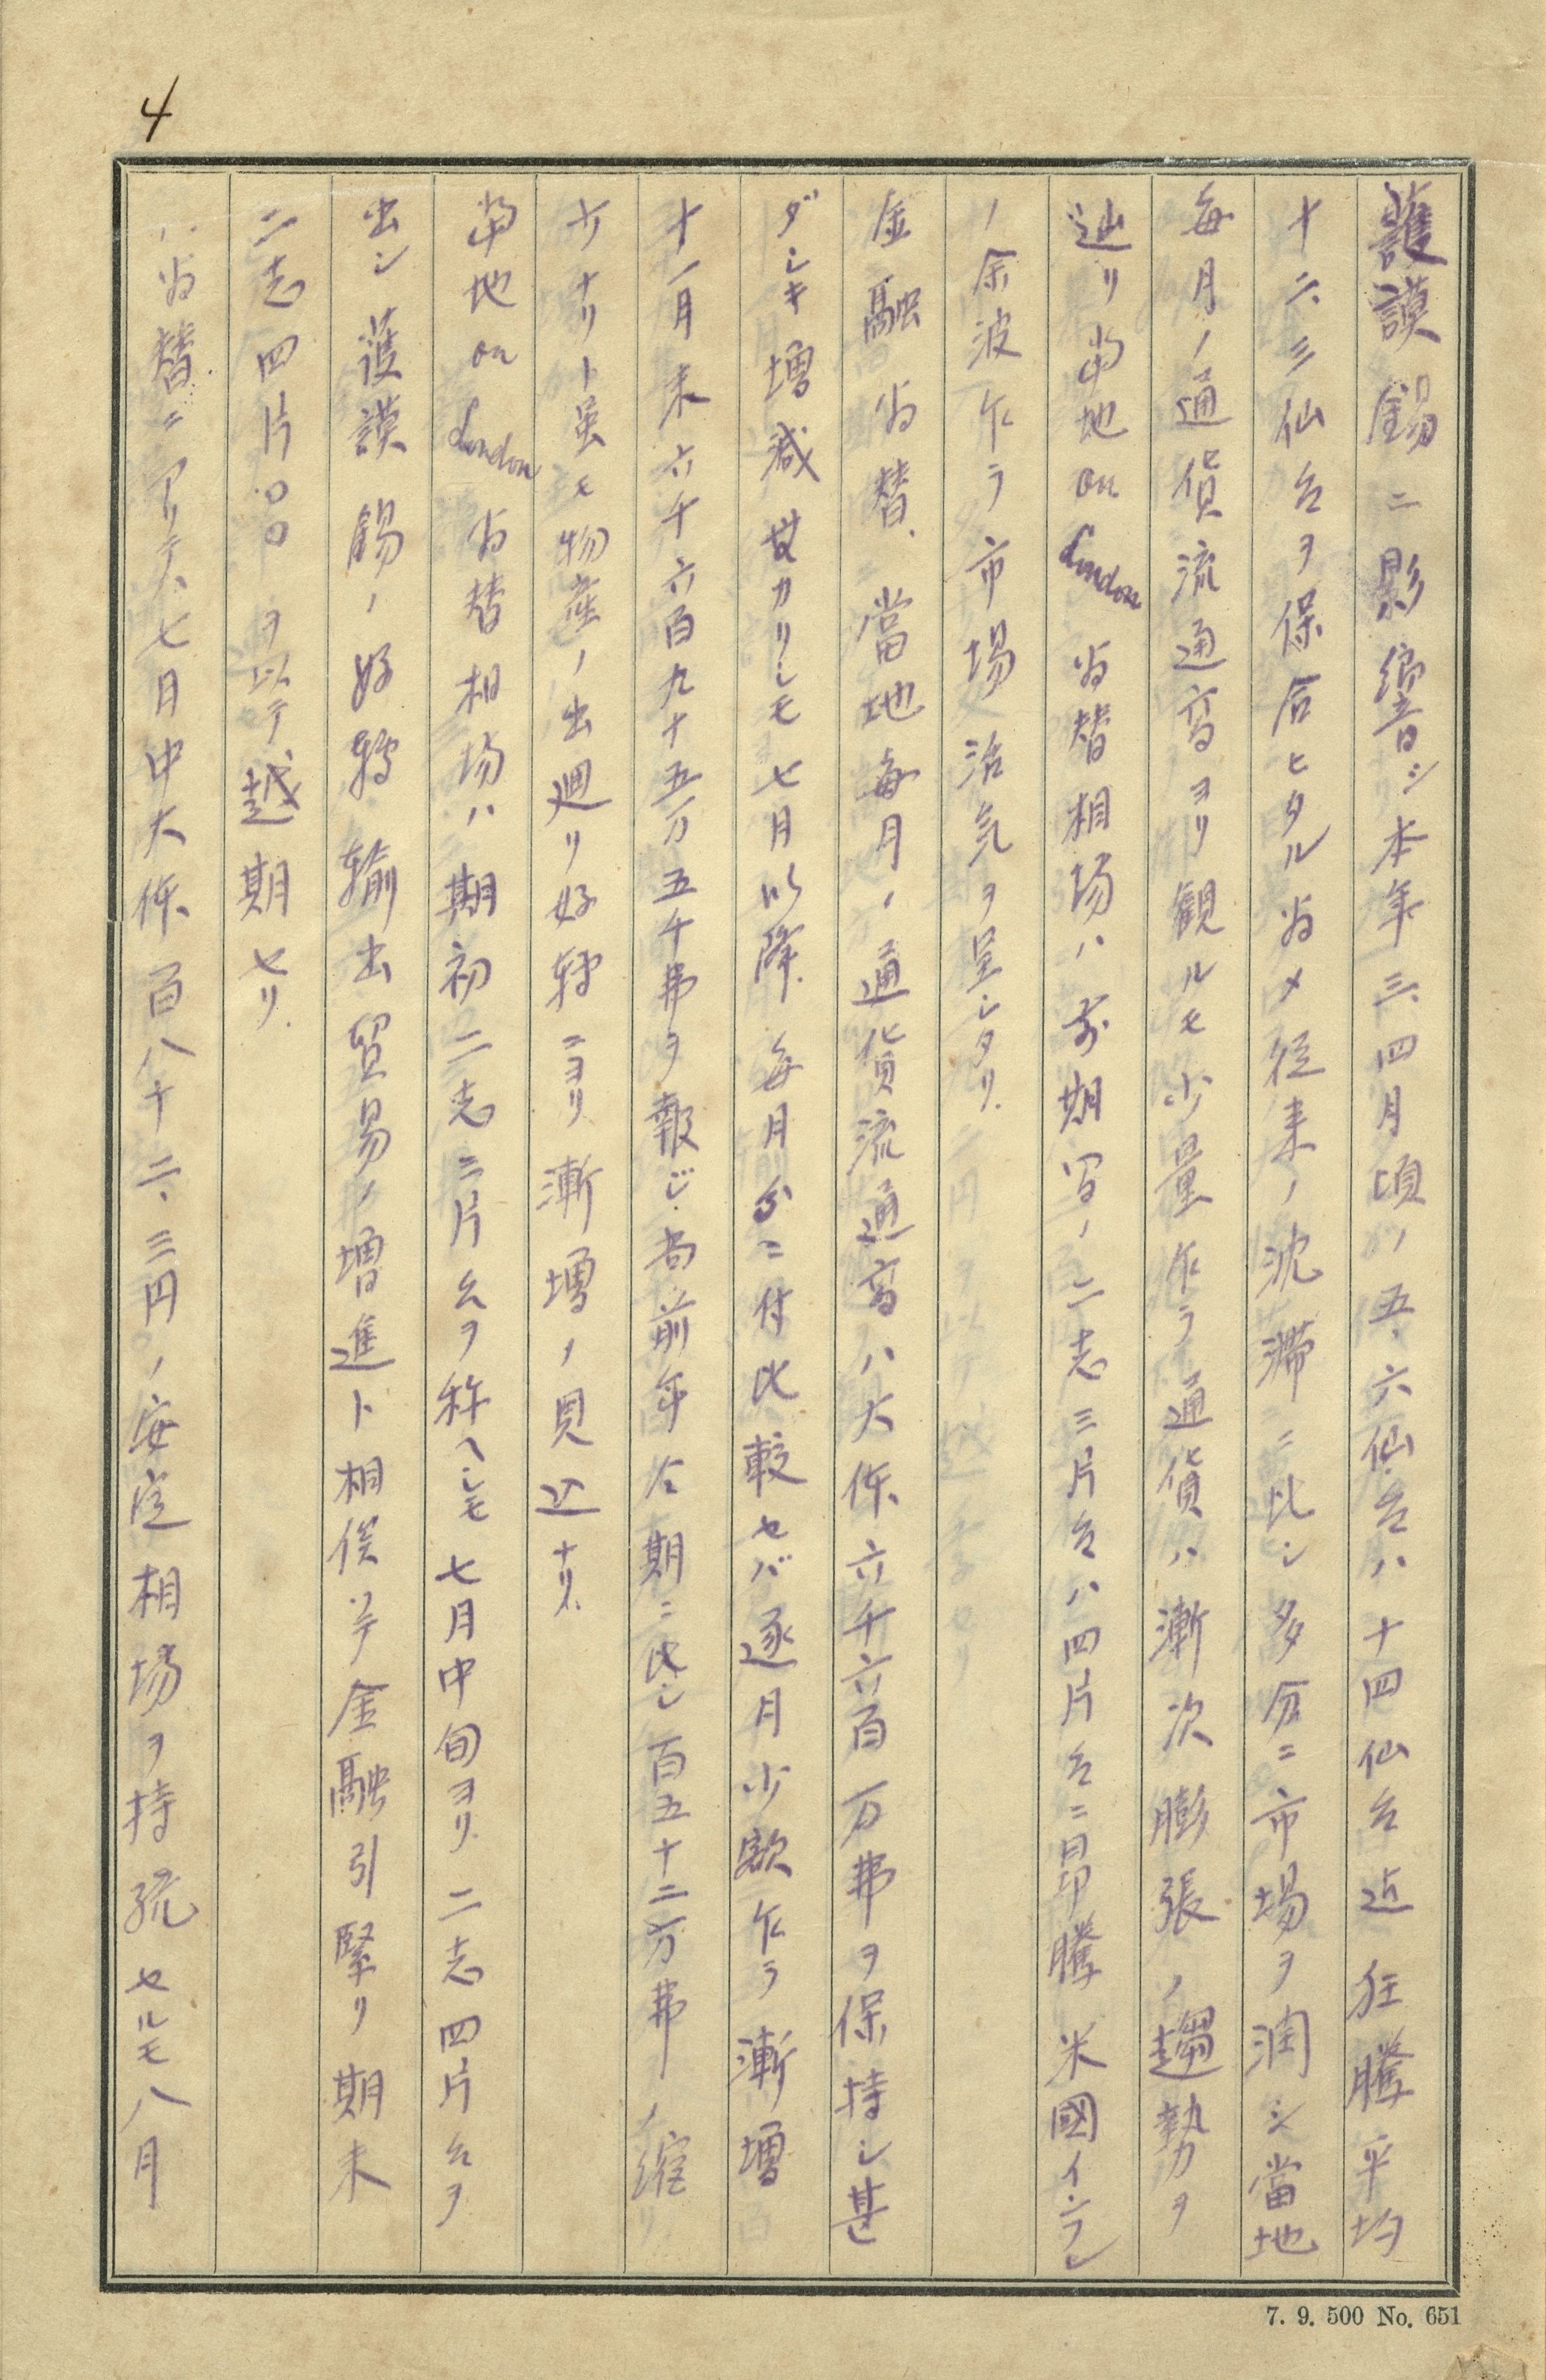 4
護謨錫ニ影響シ本年三、四月頃ノ五、六仙台ハ十四仙台迄狂騰平均
十二、三仙台ヲ保合ヒタル為メ従来ノ沈滞ニ比シ多分ニ市場ヲ潤シ當地
毎月ノ通貨流通高ヨリ観ルモ少量乍ラ通貨ハ漸次膨張ノ趨勢ヲ
辿リ当地on London為替相場ハ前期写ノ二志三片台ハ四片台ニ昂騰米國インフレ
ノ余波乍ラ市場活気ヲ呈シタリ.
金融為替、當地毎月ノ通貨流通高ハ大体六千六百万弗ヲ保持シ甚
ダシキ増減無カリシモ七月以降毎月分ニ付比較セバ逐月少額乍ラ漸増
十一月末六千六百九十五万五千弗ヲ報ジ尚前年仝期ニ比シ百五十二万弗ノ縮
少ナリト虽モ物産ノ出廻リ好転ニヨリ漸増ノ見込ナリ.
当地on London為替相場ハ期初二志三片台ヲ称ヘシモ七月中旬ヨリ二志四片台ヲ
出シ護謨錫ノ好転輸出貿易ノ増進ト相俟ツテ金融引緊リ期末
二志四片〇〇ヲ以テ越期セリ.
ハ為替ニアリテハ七月中大体百八十二、三円ノ安定相場ヲ持続セルモ八月
7. 9. 500 No. 651